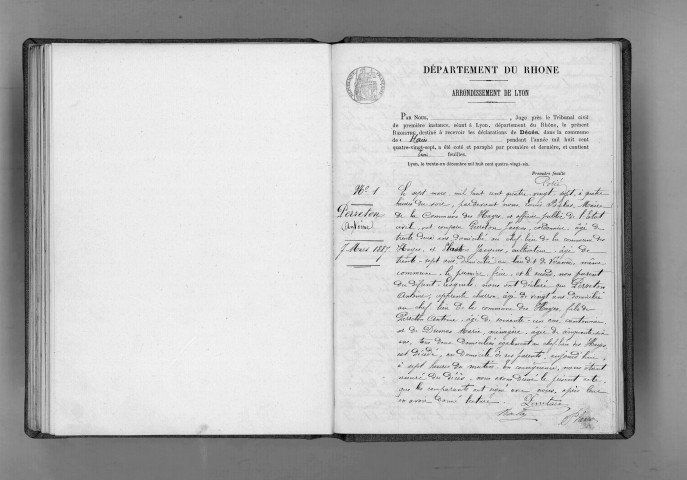 DÉPARTEMENT DU RHONE
ARRONDISSEMENT DE LYON
PAR NOUS, , Juge près le Tribunal civil
de première instance, séant à Lyon, département du Rhône, le présent
REGISTRE, destiné à recevoir les déclarations de Décès, dans la commune
de pendant l'année mil huit cent
quatre-vingt-sept, a été coté et paraphé par première et dernière, et contient
feuilles.
Lyon, le trente-un décembre mil huit cent quatre-vingt-six.
Première feuille
N° 1
Perreton
Antoine
7 Mars 1887
Le sept mars, mil huit cent quatre vingt sept, à quatre
heures du soir, par devant nous Maire
de la Commune des Hayes, et officier public de l'Etat
civil, est comparu Perreton cordonnier, âgé de
trente deux ans, domicilié au chef lieu de la commune des
Hayes, et Jacques, cultivateur, âgé de
trente sept ans, domicilié au lieu dit de même
commune, le premier frère, et le second, non parent
du défunt, lesquels nous ont déclaré que Perreton
Antoine, âgé de vingt ans, domicilié
au chef lieu de la commune des Hayes, fils de
Perreton Antoine, âgé de soixante un ans, cantonnier,
et de Dumas Marie, ménagère, âgée de cinquante six
ans, tous deux domiciliés également au chef lieu des Hayes,
est décédé, au domicile de ses parents, aujourd'hui,
à sept heures du matin. En conséquence, nous étant
assuré du décès, nous avons dressé le présent acte,
que les comparants ont signé avec nous, après leur
en avoir donné lecture.
Perreton